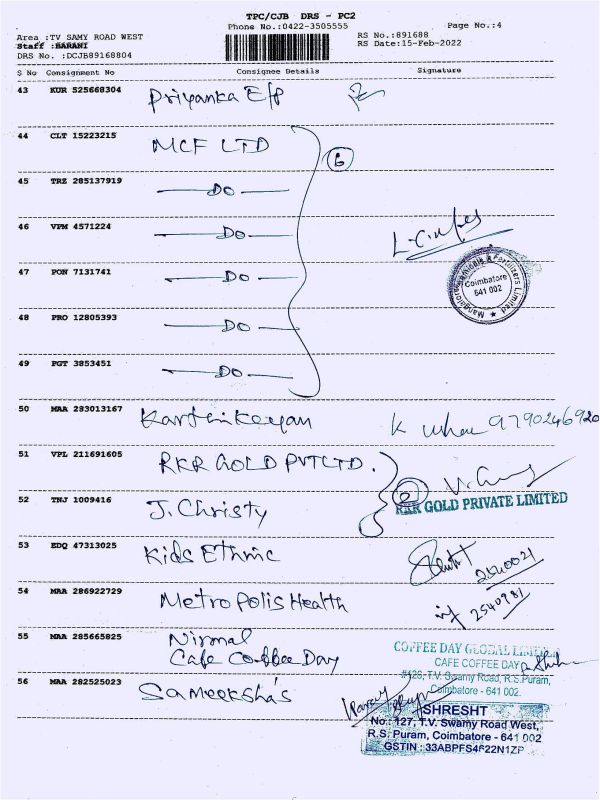 TPC/CJB DRS - PC2
Phone No.:0422-3505555
Page No.:4
Area :TV SAMY ROAD WEST
Staff :BARANI
DRS No. :DCJB89168804
RS No.:891688
RS Date:15-Feb-2022
S No Consignment No Consignee Details Signature
43 KUR 525668304 Priyanka E/P
44 CLT 15223215 MCF LTD
6
45 TRZ 285137919 DO
46 VPM 4571224 DO
47 PON 7131741 DO
Mangalore Chemicals & Fertilizers Limited
Coimbatore
641 002
48 PRO 12805393 DO
49 PGT 3853451 DO
50 MAA 283013167 Karthikeyan K 9790246920
51 VPL 211691605 RKR GOLD PVT LTD.
2
RKR GOLD PRIVATE LIMITED
52 TNJ 1009416 J. Christy
53 EDQ 47313025 Kids Ethnic
2540021
54 MAA 286922729 Metropolis Health
2540981
55 MAA 285665825 Nirmal
Cafe Coffee Day
COFFEE DAY GLOBAL LIMITED
CAFE COFFEE DAY
#126, T.V. Swamy Road, R.S.Puram,
Coimbatore - 641 002.
56 MAA 282525023 Sameeksha's
SHRESHT
No.: 127, T.V. Swamy Road West,
R.S. Puram, Coimbatore - 641 002
GSTIN : 33ABPFS4622N1ZP